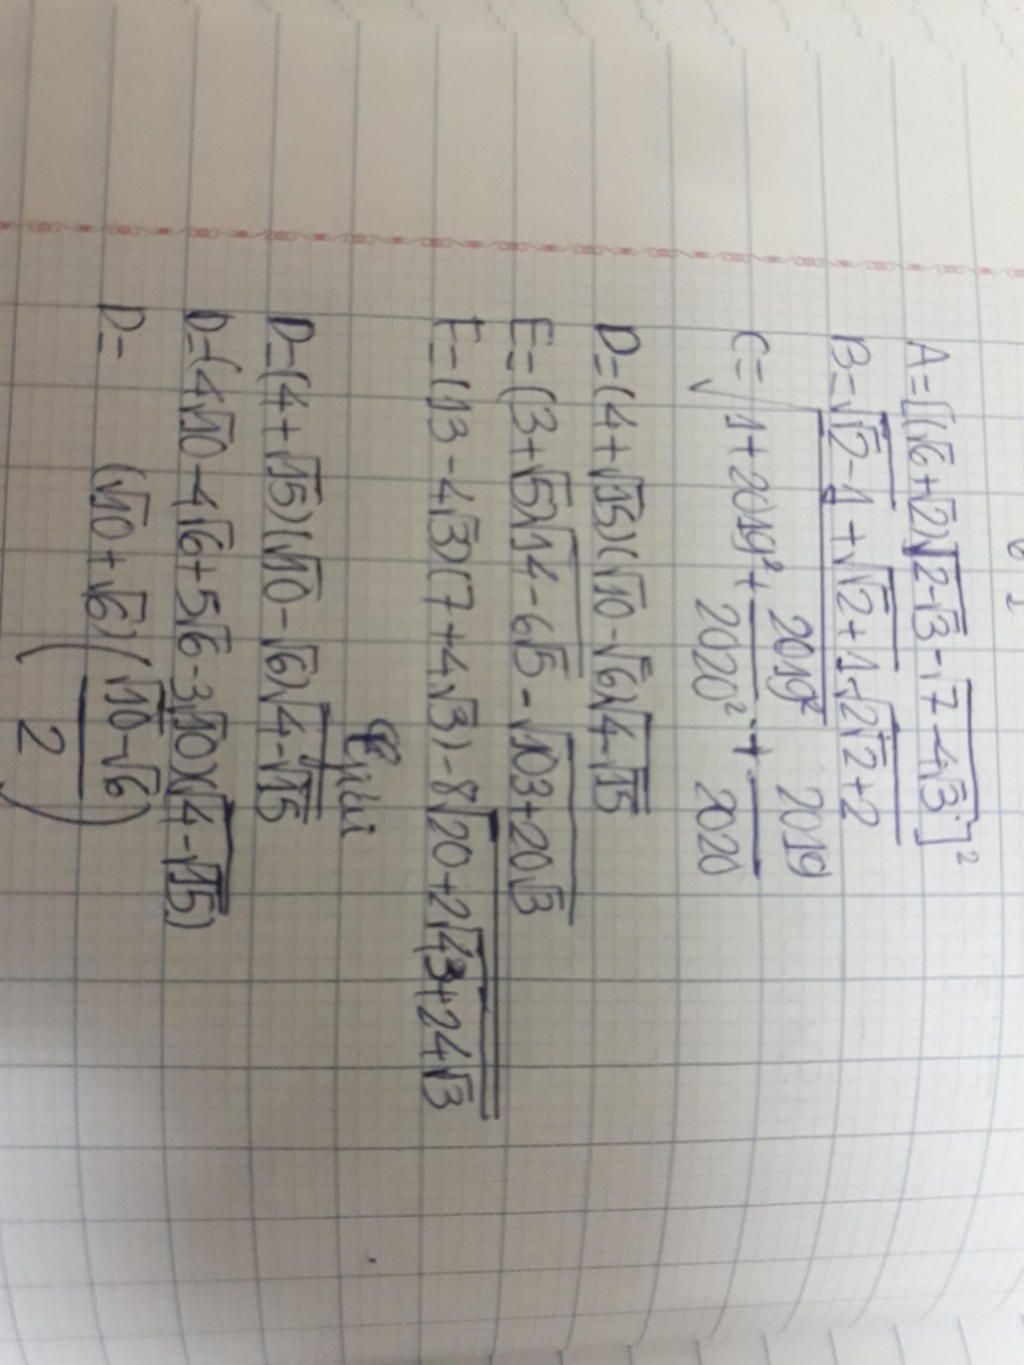 A=[(√6+√2)√(2-√3)-√(7-4√3)]²
B=√(√2-1)+√(√2+1)-√(2√2+2)
C=√(1+2019²+2019²/2020²)+2019/2020
D=(4+√15)(√10-√6)√(4-√15)
E=(3+√5)√(14-6√5)-√(103+20√3)
F=(13-4√3)(7+4√3)-8√(20+2√(43+24√3))
Giải
D=(4+√15)(√10-√6)√(4-√15)
D=(4√10-4√6+5√6-3√10)(√(4-√15))
D=(√10+√6)((√10-√6)/2)